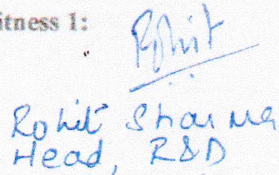 itness 1:
Rohit
Rohit Sharma
Head, R&D